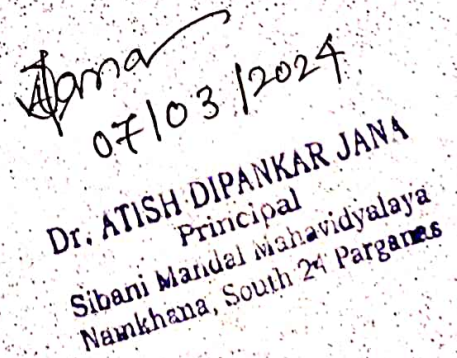 AJana
07/03/2024
Dr. ATISH DIPANKAR JANA
Principal
Sibani Mandal Mahavidyalaya
Namkhana, South 24 Parganas